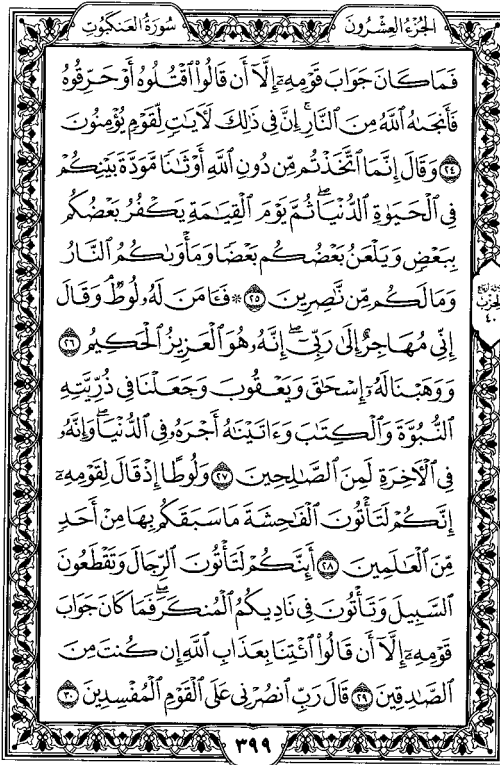 الجُزْءُ العِشْرُونَ
سُورَةُ العَنكَبُوتِ
فَمَا كَانَ جَوَابَ قَوْمِهِۦٓ إِلَّآ أَن قَالُوا۟ ٱقْتُلُوهُ أَوْ حَرِّقُوهُ
فَأَنجَىٰهُ ٱللَّهُ مِنَ ٱلنَّارِ ۚ إِنَّ فِى ذَٰلِكَ لَـَٔايَٰتٍ لِّقَوْمٍ يُؤْمِنُونَ
٢٤ وَقَالَ إِنَّمَا ٱتَّخَذْتُم مِّن دُونِ ٱللَّهِ أَوْثَٰنًا مَّوَدَّةَ بَيْنِكُمْ
فِى ٱلْحَيَوٰةِ ٱلدُّنْيَا ۖ ثُمَّ يَوْمَ ٱلْقِيَٰمَةِ يَكْفُرُ بَعْضُكُم
بِبَعْضٍ وَيَلْعَنُ بَعْضُكُم بَعْضًا وَمَأْوَىٰكُمُ ٱلنَّارُ
وَمَا لَكُم مِّن نَّٰصِرِينَ ٢٥ ۞ فَـَٔامَنَ لَهُۥ لُوطٌ ۘ وَقَالَ
إِنِّى مُهَاجِرٌ إِلَىٰ رَبِّىٓ ۖ إِنَّهُۥ هُوَ ٱلْعَزِيزُ ٱلْحَكِيمُ ٢٦
وَوَهَبْنَا لَهُۥٓ إِسْحَٰقَ وَيَعْقُوبَ وَجَعَلْنَا فِى ذُرِّيَّتِهِ
ٱلنُّبُوَّةَ وَٱلْكِتَٰبَ وَءَاتَيْنَٰهُ أَجْرَهُۥ فِى ٱلدُّنْيَا ۖ وَإِنَّهُۥ
فِى ٱلْـَٔاخِرَةِ لَمِنَ ٱلصَّٰلِحِينَ ٢٧ وَلُوطًا إِذْ قَالَ لِقَوْمِهِۦٓ
إِنَّكُمْ لَتَأْتُونَ ٱلْفَٰحِشَةَ مَا سَبَقَكُم بِهَا مِنْ أَحَدٍ
مِّنَ ٱلْعَٰلَمِينَ ٢٨ أَئِنَّكُمْ لَتَأْتُونَ ٱلرِّجَالَ وَتَقْطَعُونَ
ٱلسَّبِيلَ وَتَأْتُونَ فِى نَادِيكُمُ ٱلْمُنكَرَ ۖ فَمَا كَانَ جَوَابَ
قَوْمِهِۦٓ إِلَّآ أَن قَالُوا۟ ٱئْتِنَا بِعَذَابِ ٱللَّهِ إِن كُنتَ مِنَ
ٱلصَّٰدِقِينَ ٢٩ قَالَ رَبِّ ٱنصُرْنِى عَلَى ٱلْقَوْمِ ٱلْمُفْسِدِينَ ٣٠
٣٩٩
٤٠